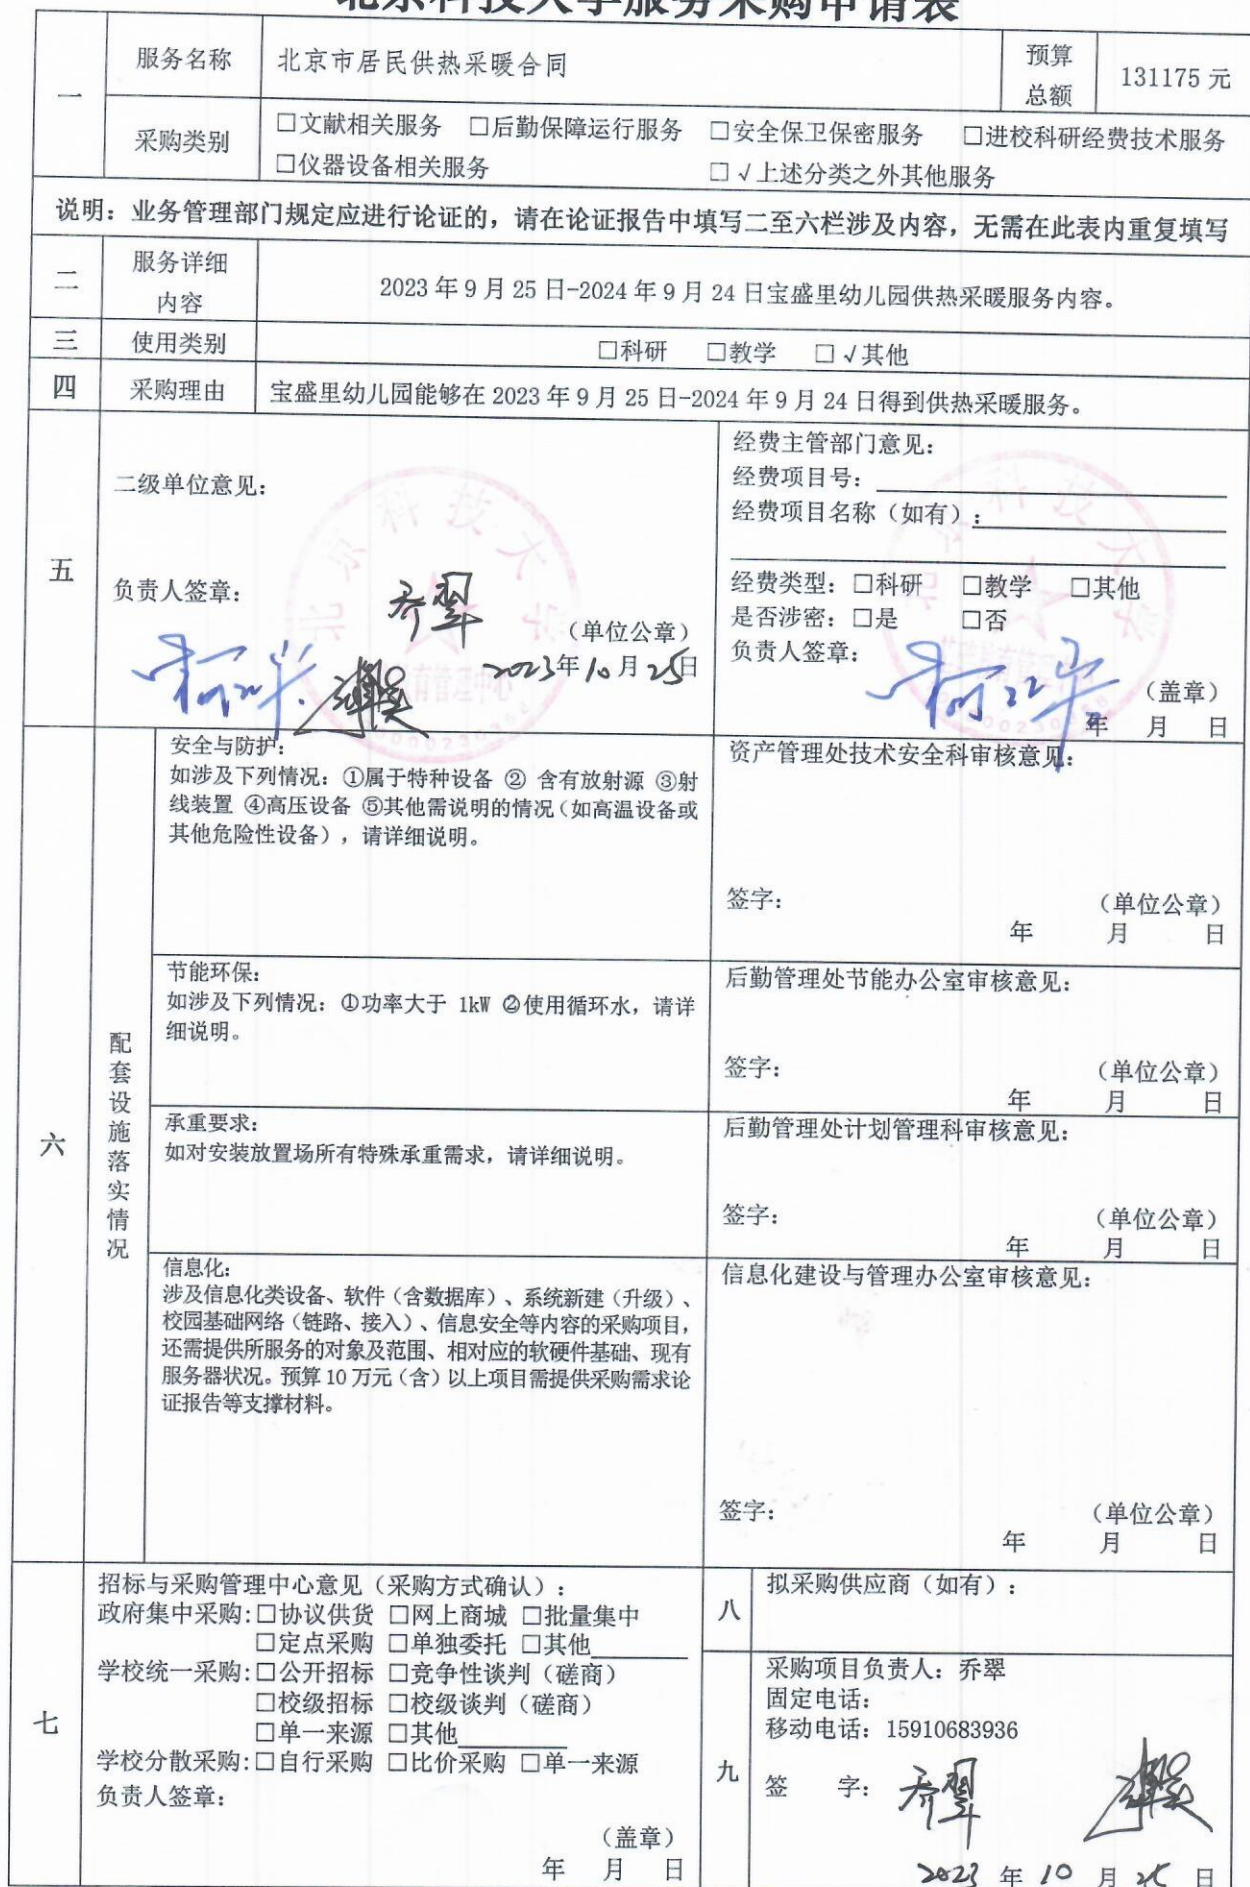 北京科技大学服务采购申请表
一
服务名称
北京市居民供热采暖合同
预算
总额
131175 元
采购类别
□文献相关服务 □后勤保障运行服务 □安全保卫保密服务 □进校科研经费技术服务
□仪器设备相关服务 □√上述分类之外其他服务
说明：业务管理部门规定应进行论证的，请在论证报告中填写二至六栏涉及内容，无需在此表内重复填写
二
服务详细
内容
2023 年 9 月 25 日-2024 年 9 月 24 日宝盛里幼儿园供热采暖服务内容。
三
使用类别
□科研 □教学 □√其他
四
采购理由
宝盛里幼儿园能够在 2023 年 9 月 25 日-2024 年 9 月 24 日得到供热采暖服务。
五
二级单位意见：
负责人签章：
乔翠
（单位公章）
2023年10月25日
经费主管部门意见：
经费项目号：
经费项目名称（如有）：
经费类型：□科研 □教学 □其他
是否涉密：□是 □否
负责人签章：
（盖章）
年 月 日
六
配套设施落实情况
安全与防护：
如涉及下列情况：①属于特种设备 ② 含有放射源 ③射
线装置 ④高压设备 ⑤其他需说明的情况（如高温设备或
其他危险性设备），请详细说明。
资产管理处技术安全科审核意见：
签字：
（单位公章）
年 月 日
节能环保：
如涉及下列情况：①功率大于 1kW ②使用循环水，请详
细说明。
后勤管理处节能办公室审核意见：
签字：
（单位公章）
年 月 日
承重要求：
如对安装放置场所有特殊承重需求，请详细说明。
后勤管理处计划管理科审核意见：
签字：
（单位公章）
年 月 日
信息化：
涉及信息化类设备、软件（含数据库）、系统新建（升级）、
校园基础网络（链路、接入）、信息安全等内容的采购项目，
还需提供所服务的对象及范围、相对应的软硬件基础、现有
服务器状况。预算 10 万元（含）以上项目需提供采购需求论
证报告等支撑材料。
信息化建设与管理办公室审核意见：
签字：
（单位公章）
年 月 日
七
招标与采购管理中心意见（采购方式确认）：
政府集中采购：□协议供货 □网上商城 □批量集中
□定点采购 □单独委托 □其他
学校统一采购：□公开招标 □竞争性谈判（磋商）
□校级招标 □校级谈判（磋商）
□单一来源 □其他
学校分散采购：□自行采购 □比价采购 □单一来源
负责人签章：
（盖章）
年 月 日
八
拟采购供应商（如有）：
九
采购项目负责人：乔翠
固定电话：
移动电话：15910683936
签 字：乔翠
2023 年 10 月 25 日